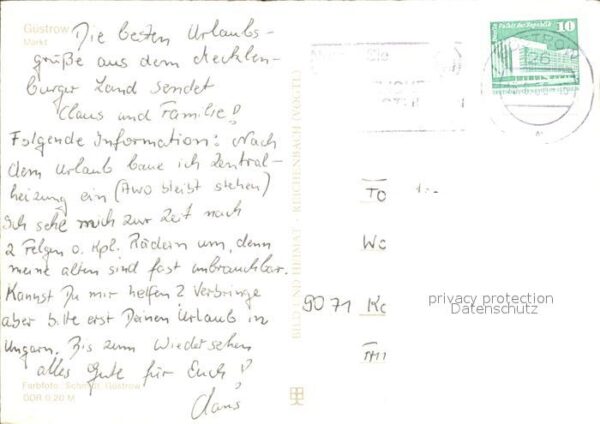 Güstrow
Markt
Die besten Urlaubs-
grüße aus dem Mecklen-
burger Land sendet
Claus und Familie!
Folgende Information: Nach
dem Urlaub baue ich Zentral-
heizung ein (AWO bleibt stehen)
Ich sehe mich zur Zeit nach
2 Felgen o. kpl. Rädern um, denn
meine alten sind fast unbrauchbar.
Kannst Du mir helfen? Verbringe
aber bitte erst Deinen Urlaub in
Ungarn. Bis zum Wiedersehen
alles Gute für Euch!
Claus
Farbfoto: Schmidt, Güstrow
DDR 0,20 M
BILD UND HEIMAT REICHENBACH (VOGTL)
Palast der Republik 10
DDR
26
9071
privacy protection
Datenschutz